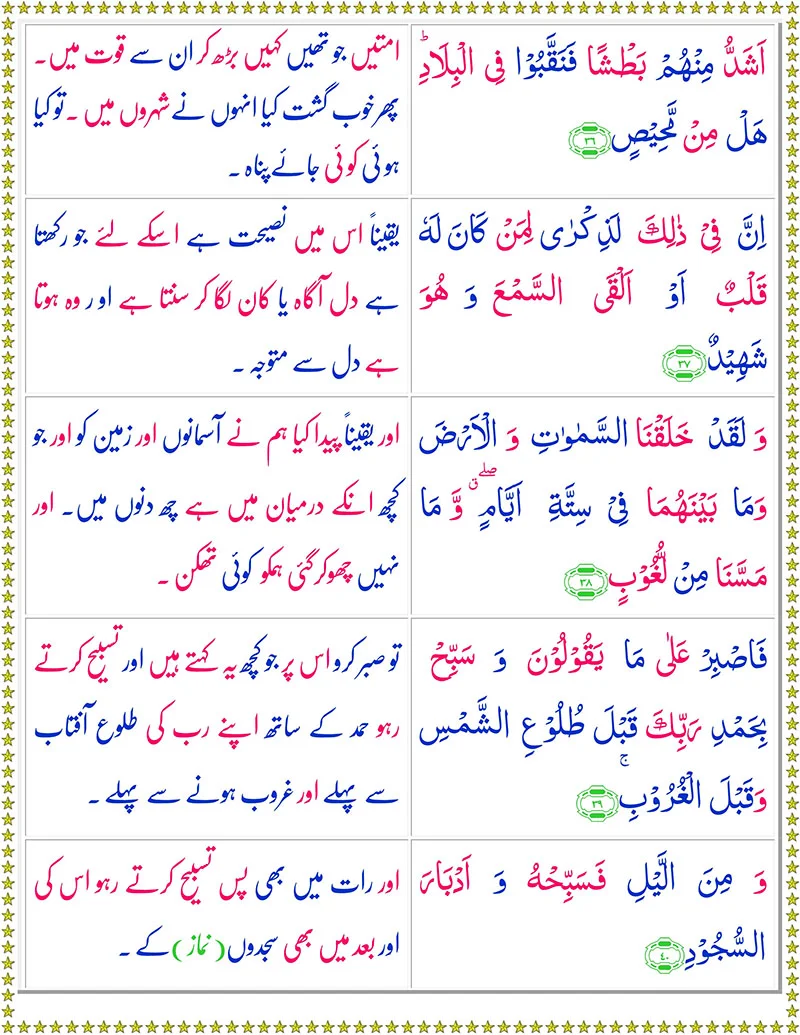 اَشَدُّ مِنْهُمْ بَطْشًا فَنَقَّبُوْا فِی الْبِلَادِؕ
هَلْ مِنْ مَّحِیْصٍ ﴿۳۶﴾
امتیں جو تھیں کہیں بڑھ کر ان سے قوت میں۔
پھر خوب گشت کیا انہوں نے شہروں میں ۔ تو کیا
ہوئی کوئی جائے پناہ ۔
اِنَّ فِیْ ذٰلِكَ لَذِكْرٰی لِمَنْ كَانَ لَهٗ
قَلْبٌ اَوْ اَلْقَی السَّمْعَ وَ هُوَ
شَهِیْدٌ ﴿۳۷﴾
یقیناً اس میں نصیحت ہے اسکے لئے جو رکھتا
ہے دل آگاہ یا کان لگا کر سنتا ہے او ر وہ ہوتا
ہے دل سے متوجہ ۔
وَ لَقَدْ خَلَقْنَا السَّمٰوٰتِ وَ الْاَرْضَ
وَمَا بَیْنَهُمَا فِیْ سِتَّةِ اَیَّامٍ ۖۗ وَّ مَا
مَسَّنَا مِنْ لُّغُوْبٍ ﴿۳۸﴾
اور یقیناً پیدا کیا ہم نے آسمانوں اور زمین کو اور جو
کچھ انکے درمیان میں ہے چھ دنوں میں۔ اور
نہیں چھو کر گئی ہمکو کوئی تھکن ۔
فَاصْبِرْ عَلٰی مَا یَقُوْلُوْنَ وَ سَبِّحْ
بِحَمْدِ رَبِّكَ قَبْلَ طُلُوْعِ الشَّمْسِ
وَقَبْلَ الْغُرُوْبِ ۚ ﴿۳۹﴾
تو صبر کرو اس پر جو کچھ یہ کہتے ہیں اور تسبیح کرتے
رہو حمد کے ساتھ اپنے رب کی طلوع آفتاب
سے پہلے اور غروب ہونے سے پہلے ۔
وَ مِنَ الَّیْلِ فَسَبِّحْهُ وَ اَدْبَارَ
السُّجُوْدِ ﴿۴۰﴾
اور رات میں بھی پس تسبیح کرتے رہو اس کی
اور بعد میں بھی سجدوں (نماز) کے ۔